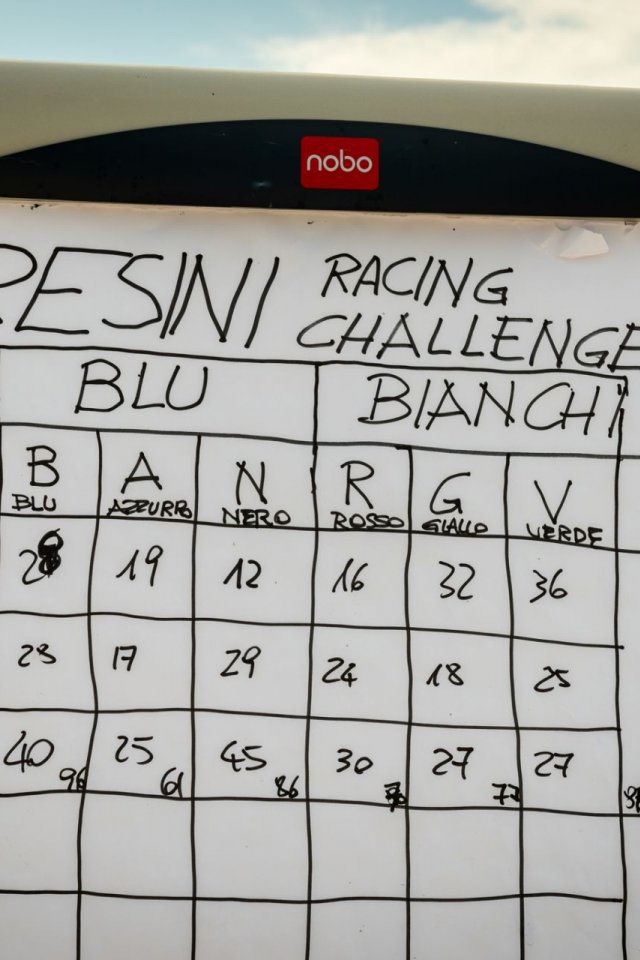 nobo
RESINI RACING
CHALLENGE
BLU BIANCHI
B A N R G V
BLU AZZURRO NERO ROSSO GIALLO VERDE
28 19 12 16 32 36
28 17 29 24 18 25
40 25 45 30 27 27
96 61 86 77